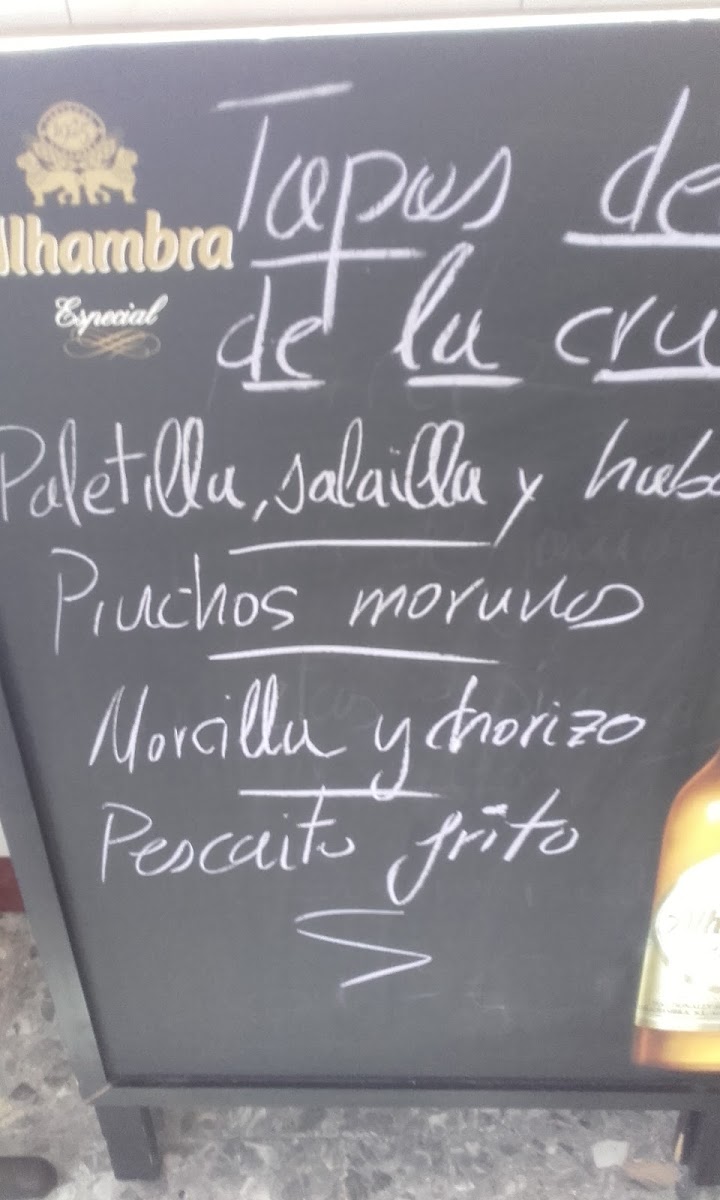 1925
Alhambra
Especial
Tapas de
de la cru
Paletilla, salailla y haba
Pinchos morunos
Morcilla y chorizo
Pescaito frito
Alh